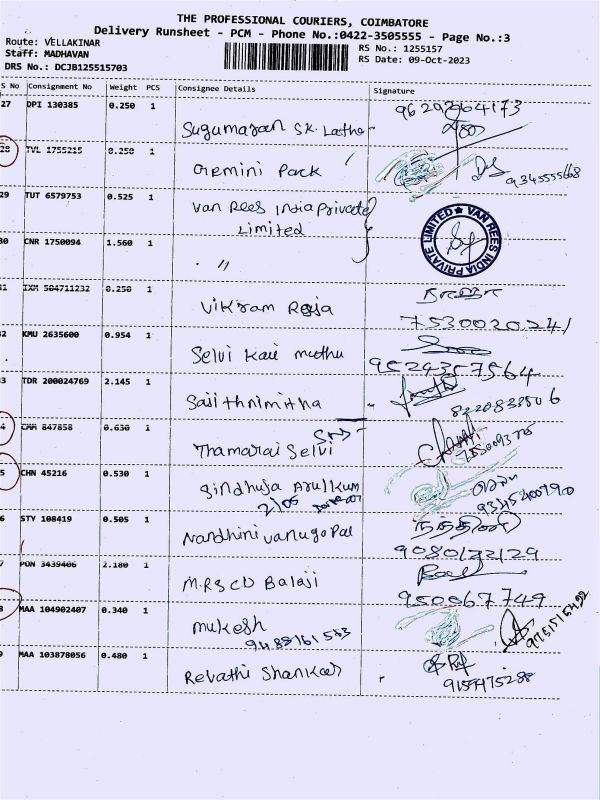 THE PROFESSIONAL COURIERS, COIMBATORE
Delivery Runsheet - PCM - Phone No.:0422-3505555 - Page No.:3
Route: VELLAKINAR
RS No.: 1255157
Staff: MADHAVAN
RS Date: 09-Oct-2023
DRS No.: DCJB125515703
S No Consignment No Weight PCS Consignee Details Signature
27 DPI 130385 0.250 1
Sugumaran S.K.
28 TVL 1755215 0.250 1
Gemini Pack
9345555668
29 TUT 6579753 0.525 1
Van Rees India Private
Limited
VAN REES INDIA PRIVATE LIMITED
30 CNR 1750094 1.560 1
"
31 IXM 504711232 0.250 1
Vikram Raja
7530020241
32 KMU 2635600 0.954 1
Selvi Kani muthu
9524357564
33 TDR 200024769 2.145 1
Saiithnimitha
8220833506
4 CMM 847858 0.630 1
Thamarai Selvi
5 CHN 45216 0.530 1
Sindhuja Arulkum
2/05
9345400790
6 STY 108419 0.505 1
Nandhini vanugopal
நந்தினி
9080133129
7 PON 3439406 2.180 1
M.RSCD Balaji
950067749
8 MAA 104902407 0.340 1
mukesh
9488161533
9 MAA 103878056 0.480 1
Revathi Shankar
9159475288